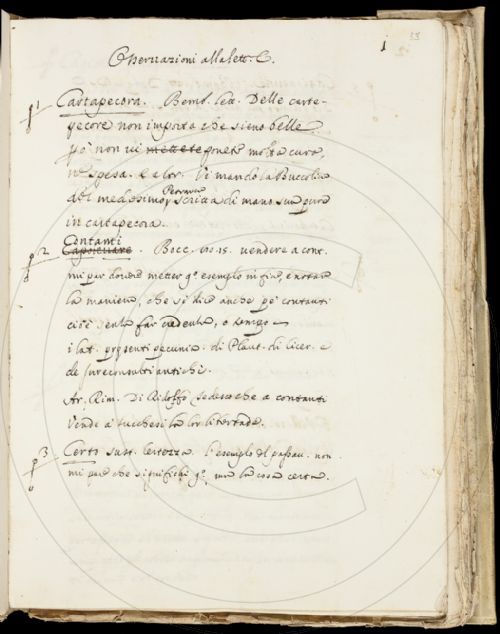 1
Osservazioni alla lett. C.
1 Cartapecora. Bemb. lett. Delle carte-
pecore non importa che sieno belle
però non vi mettete ponete molta cura,
nè spesa. E a lor. Vi mando la Buccolica
del medesimo Petrarca scritta di mano sua pure
in cartapecora.
Contanti
2 . Bocc. no. 15. vendere a cont.
mi par dovere metter qº esemplo in fine, e notare
la maniera, che si dice anche pe' contanti
cioè senza far credenza, o tempo
i lat. presenti pecunia: di Plaut. di Cicer. e
de' Jureconsulti antichi.
Ar. Rim. Di Ridolfo Tedesco che a contanti
Vende a' Lucchesi la lor libertade.
3 Certo sust. certezza. l'esemplo del passav. non
mi pare che significhi qº, ma la cosa certa.